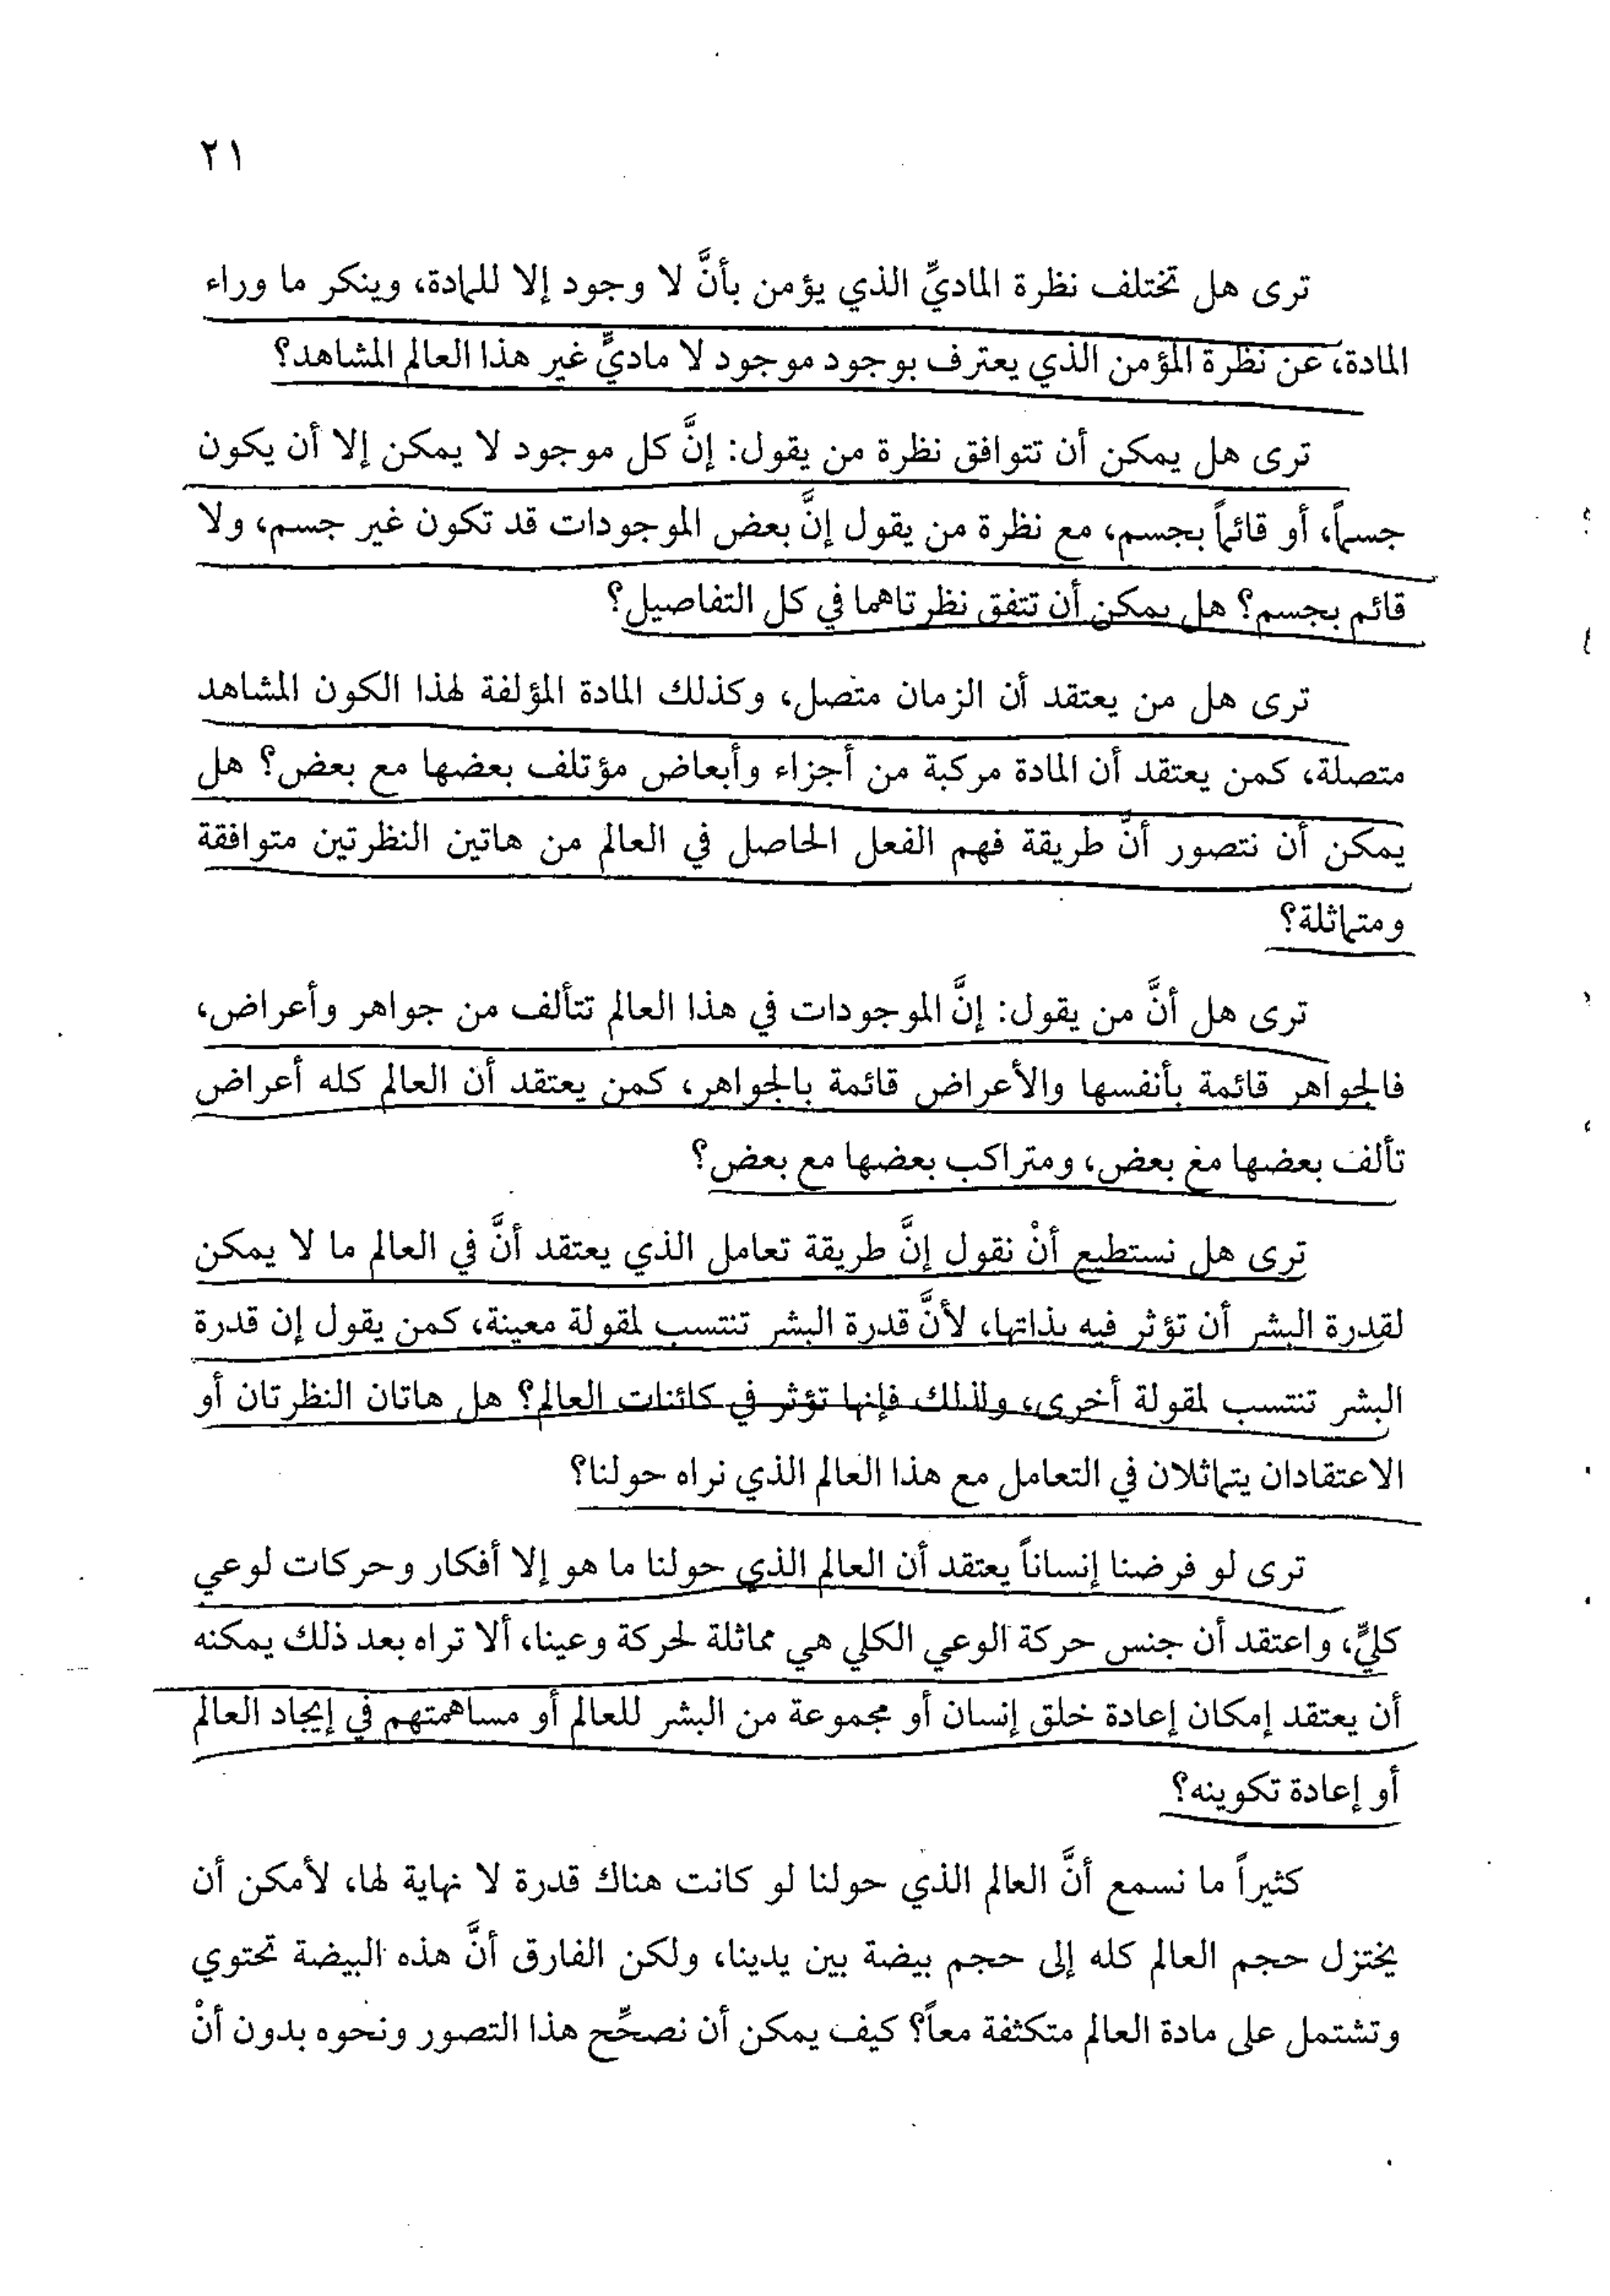 ٢١
ترى هل تختلف نظرة الماديِّ الذي يؤمن بأنَّ لا وجود إلا للمادة، وينكر ما وراء
المادة، عن نظرة المؤمن الذي يعترف بوجود موجود لا ماديٍّ غير هذا العالم المشاهد؟
ترى هل يمكن أن تتوافق نظرة من يقول: إنَّ كل موجود لا يمكن إلا أن يكون
جسماً، أو قائماً بجسم، مع نظرة من يقول إنَّ بعض الموجودات قد تكون غير جسم، ولا
قائم بجسم؟ هل يمكن أن تتفق نظرتاهما في كل التفاصيل؟
ترى هل من يعتقد أن الزمان متصل، وكذلك المادة المؤلفة لهذا الكون المشاهد
متصلة، كمن يعتقد أن المادة مركبة من أجزاء وأبعاض مؤتلف بعضها مع بعض؟ هل
يمكن أن نتصور أنَّ طريقة فهم الفعل الحاصل في العالم من هاتين النظرتين متوافقة
ومتماثلة؟
ترى هل أنَّ من يقول: إنَّ الموجودات في هذا العالم تتألف من جواهر وأعراض،
فالجواهر قائمة بأنفسها والأعراض قائمة بالجواهر، كمن يعتقد أن العالم كله أعراض
تألف بعضها مع بعض، ومتراكب بعضها مع بعض؟
ترى هل نستطيع أنْ نقول إنَّ طريقة تعامل الذي يعتقد أنَّ في العالم ما لا يمكن
لقدرة البشر أن تؤثر فيه بذاتها، لأنَّ قدرة البشر تنتسب لمقولة معينة، كمن يقول إن قدرة
البشر تنتسب لمقولة أخرى، ولذلك فإنها تؤثر في كائنات العالم؟ هل هاتان النظرتان أو
الاعتقادان يتماثلان في التعامل مع هذا العالم الذي نراه حولنا؟
ترى لو فرضنا إنساناً يعتقد أن العالم الذي حولنا ما هو إلا أفكار وحركات لوعي
كليٍّ، واعتقد أن جنس حركة الوعي الكلي هي مماثلة لحركة وعينا، ألا تراه بعد ذلك يمكنه
أن يعتقد إمكان إعادة خلق إنسان أو مجموعة من البشر للعالم أو مساهمتهم في إيجاد العالم
أو إعادة تكوينه؟
كثيراً ما نسمع أنَّ العالم الذي حولنا لو كانت هناك قدرة لا نهاية لها، لأمكن أن
يختزل حجم العالم كله إلى حجم بيضة بين يدينا، ولكن الفارق أنَّ هذه البيضة تحتوي
وتشتمل على مادة العالم متكثفة معاً؟ كيف يمكن أن نصحِّح هذا التصور ونحوه بدون أنْ